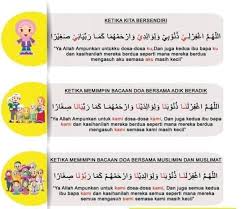 KETIKA KITA BERSENDIRI
اللَّهُمَّ اغْفِرْلِيْ ذُنُوْبِيْ وَلِوَالِدَيَّ وَارْحَمْهُمَا كَمَا رَبَّيَانِيْ صَغِيْرًا
"Ya Allah Ampunkan untukku dosa-dosa ku,Dan juga kedua ibu bapa ku
dan kasihanilah mereka berdua seperti mana mereka berdua
mengasuh aku semasa aku masih kecil"
KETIKA MEMIMPIN BACAAN DOA BERSAMA ADIK BERADIK
اللَّهُمَّ اغْفِرْلَنَا ذُنُوْبَنَا وَلِوَالِدِيْنَا وَارْحَمْهُمَا كَمَا رَبَّوْنَا صِغَارًا
"Ya Allah Ampunkan untuk kami dosa-dosa kami, Dan juga kedua ibu bapa
kami dan kasihanilah mereka berdua seperti mana mereka berdua
mengasuh kami semasa kami masih kecil"
KETIKA MEMIMPIN BACAAN DOA BERSAMA MUSLIMIN DAN MUSLIMAT
اللَّهُمَّ اغْفِرْلَنَا ذُنُوْبَنَا وَلِوَالِدِيْنَا وَارْحَمْهُمْ كَمَا رَبَّوْنَا صِغَارًا
"Ya Allah Ampunkan untuk kami dosa-dosa kami, Dan juga semua kedua
ibu bapa kami dan kasihanilah mereka semua seperti mana mereka
semua mengasuh kami semasa kami masih kecil"